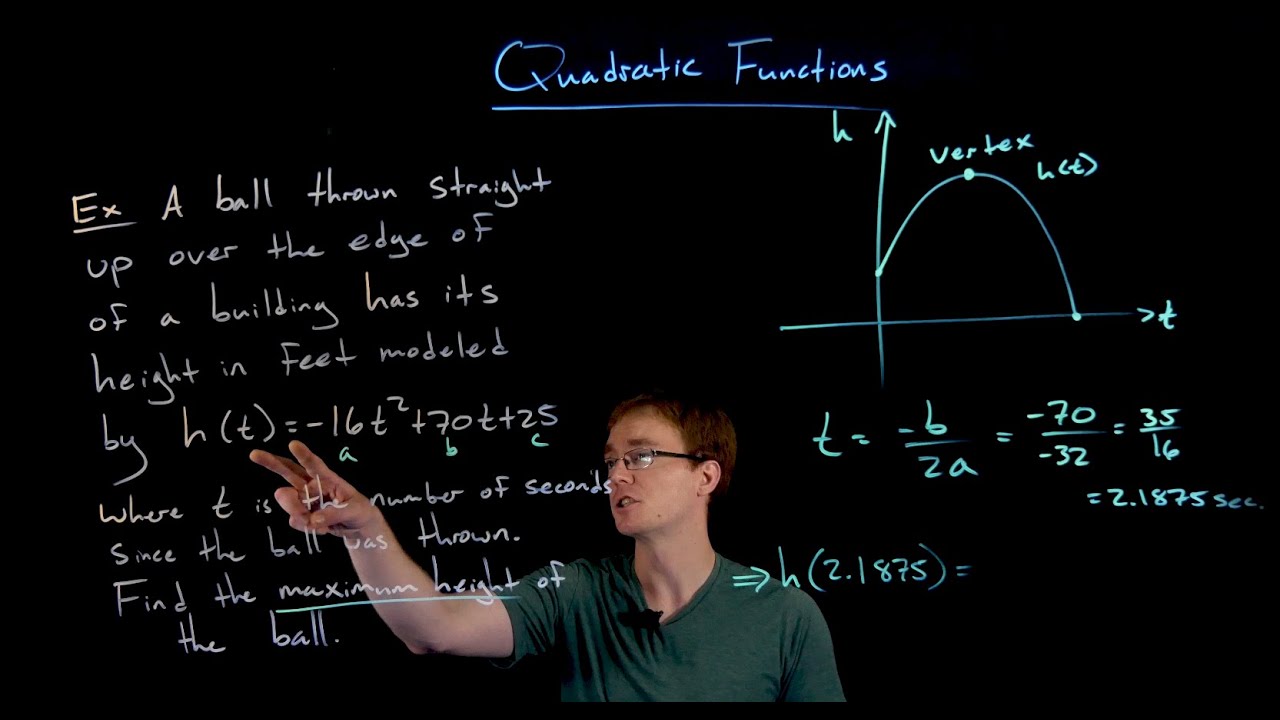 Quadratic Functions
Ex A ball thrown straight
up over the edge of
of a building has its
height in feet modeled
by h(t)=-16t²+70t+25
a b c
where t is the number of seconds
since the ball was thrown.
Find the maximum height of
the ball.
h
vertex
h(t)
t
t = -b/2a = -70/-32 = 35/16
= 2.1875 sec.
⇒ h(2.1875) =